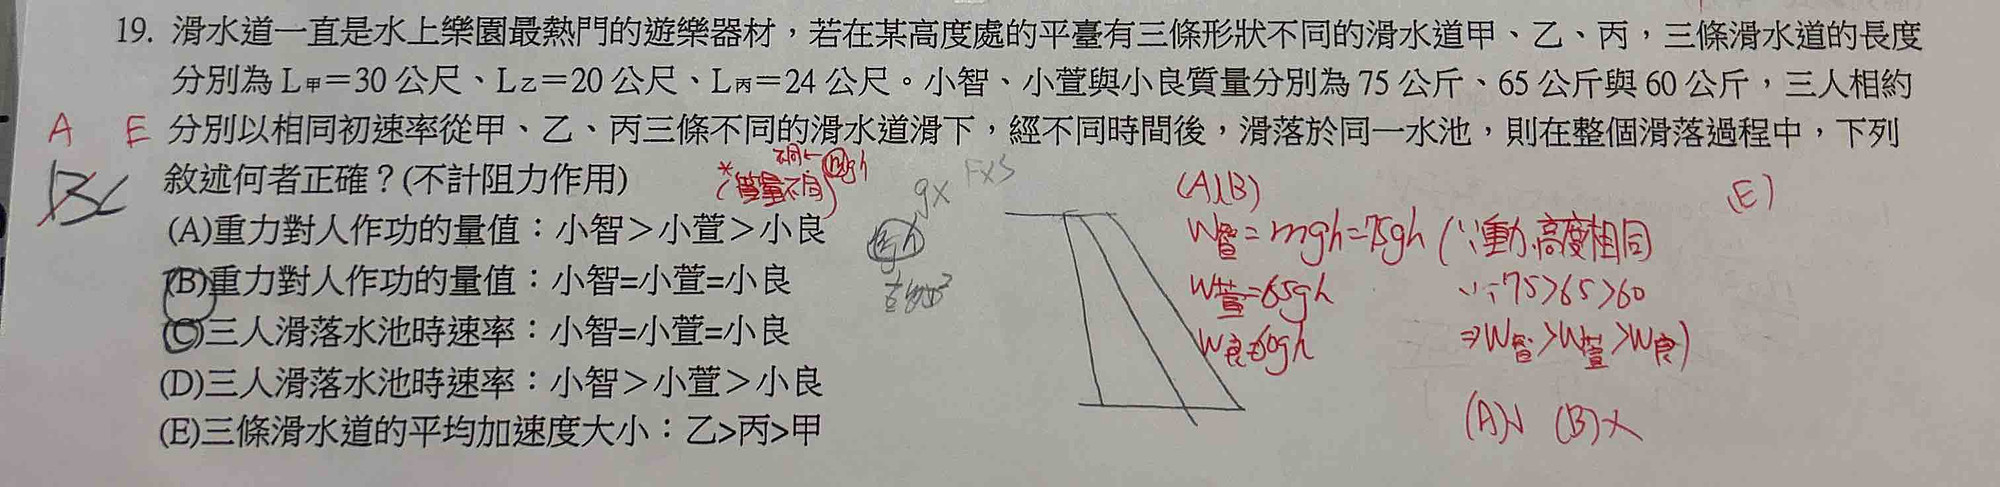 19. 滑水道一直是水上樂園最熱門的遊樂器材，若在某高度處的平臺有三條形狀不同的滑水道甲、乙、丙，三條滑水道的長度
分別為L甲＝30公尺、L乙＝20公尺、L丙＝24公尺。小智、小萱與小良質量分別為75公斤、65公斤與60公斤，三人相約
A E 分別以相同初速率從甲、乙、丙三條不同的滑水道滑下，經不同時間後，滑落於同一水池，則在整個滑落過程中，下列
BC 敘述何者正確？(不計阻力作用)
不同← mgh
*(質量不同)
gx FxS
(A)重力對人作功的量值：小智＞小萱＞小良
(B)重力對人作功的量值：小智=小萱=小良
(C)三人滑落水池時速率：小智=小萱=小良
(D)三人滑落水池時速率：小智＞小萱＞小良
(E)三條滑水道的平均加速度大小：乙>丙>甲
(A)(B)
W智=mgh=75gh (∵動,高度相同
W萱=65gh ∵75>65>60
W良=60gh ⇒W智>W萱>W良)
(A)√ (B)×
(E)